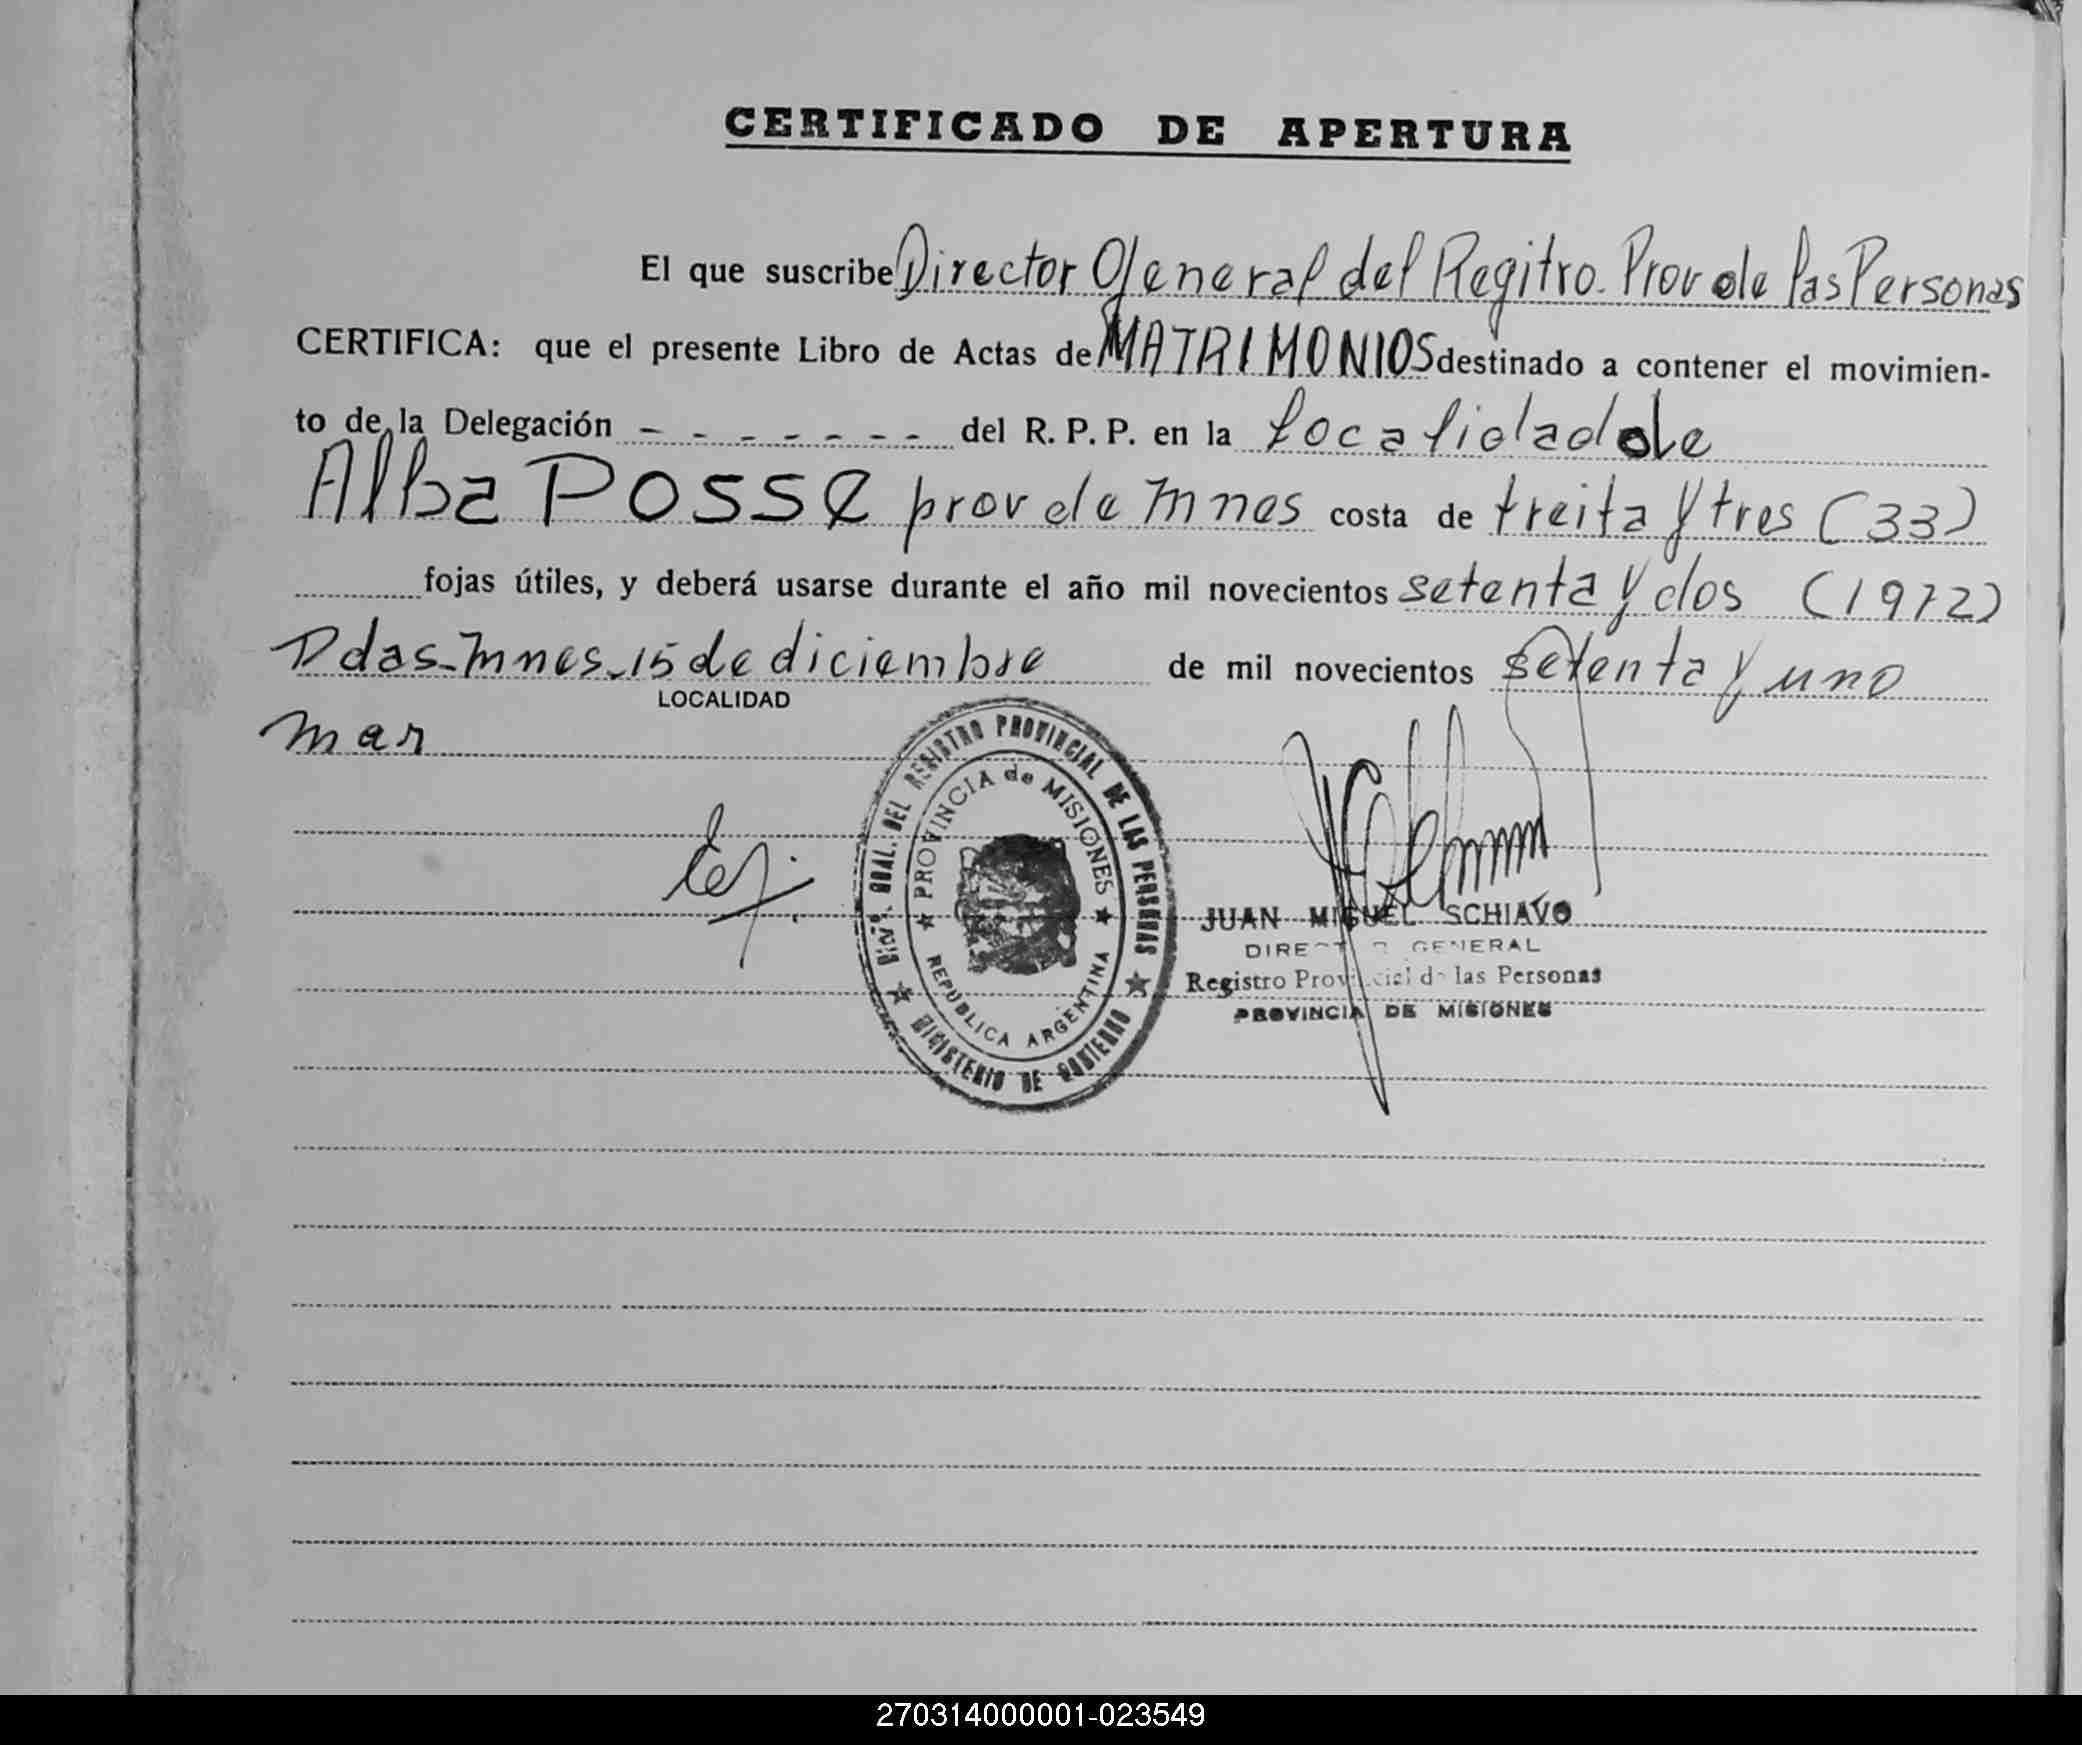 CERTIFICADO DE APERTURA
El que suscribe Director General del Regitro. Prov de las Personas
CERTIFICA: que el presente Libro de Actas de MATRIMONIOS destinado a contener el movimien-
to de la Delegación - - - - - - - del R. P. P. en la localidad de
Alba Posse prov de Mnes costa de treita y tres (33)
fojas útiles, y deberá usarse durante el año mil novecientos setenta y dos (1972)
Pdas-Mnes-15 de diciembre de mil novecientos setenta y uno
LOCALIDAD
mar
GRAL. DEL REGISTRO PROVINCIAL DE LAS PERSONAS
PROVINCIA de MISIONES
REPUBLICA ARGENTINA
MINISTERIO DE GOBIERNO
JUAN MIGUEL SCHIAVO
DIRECTOR GENERAL
Registro Provincial de las Personas
PROVINCIA DE MISIONES
270314000001-023549